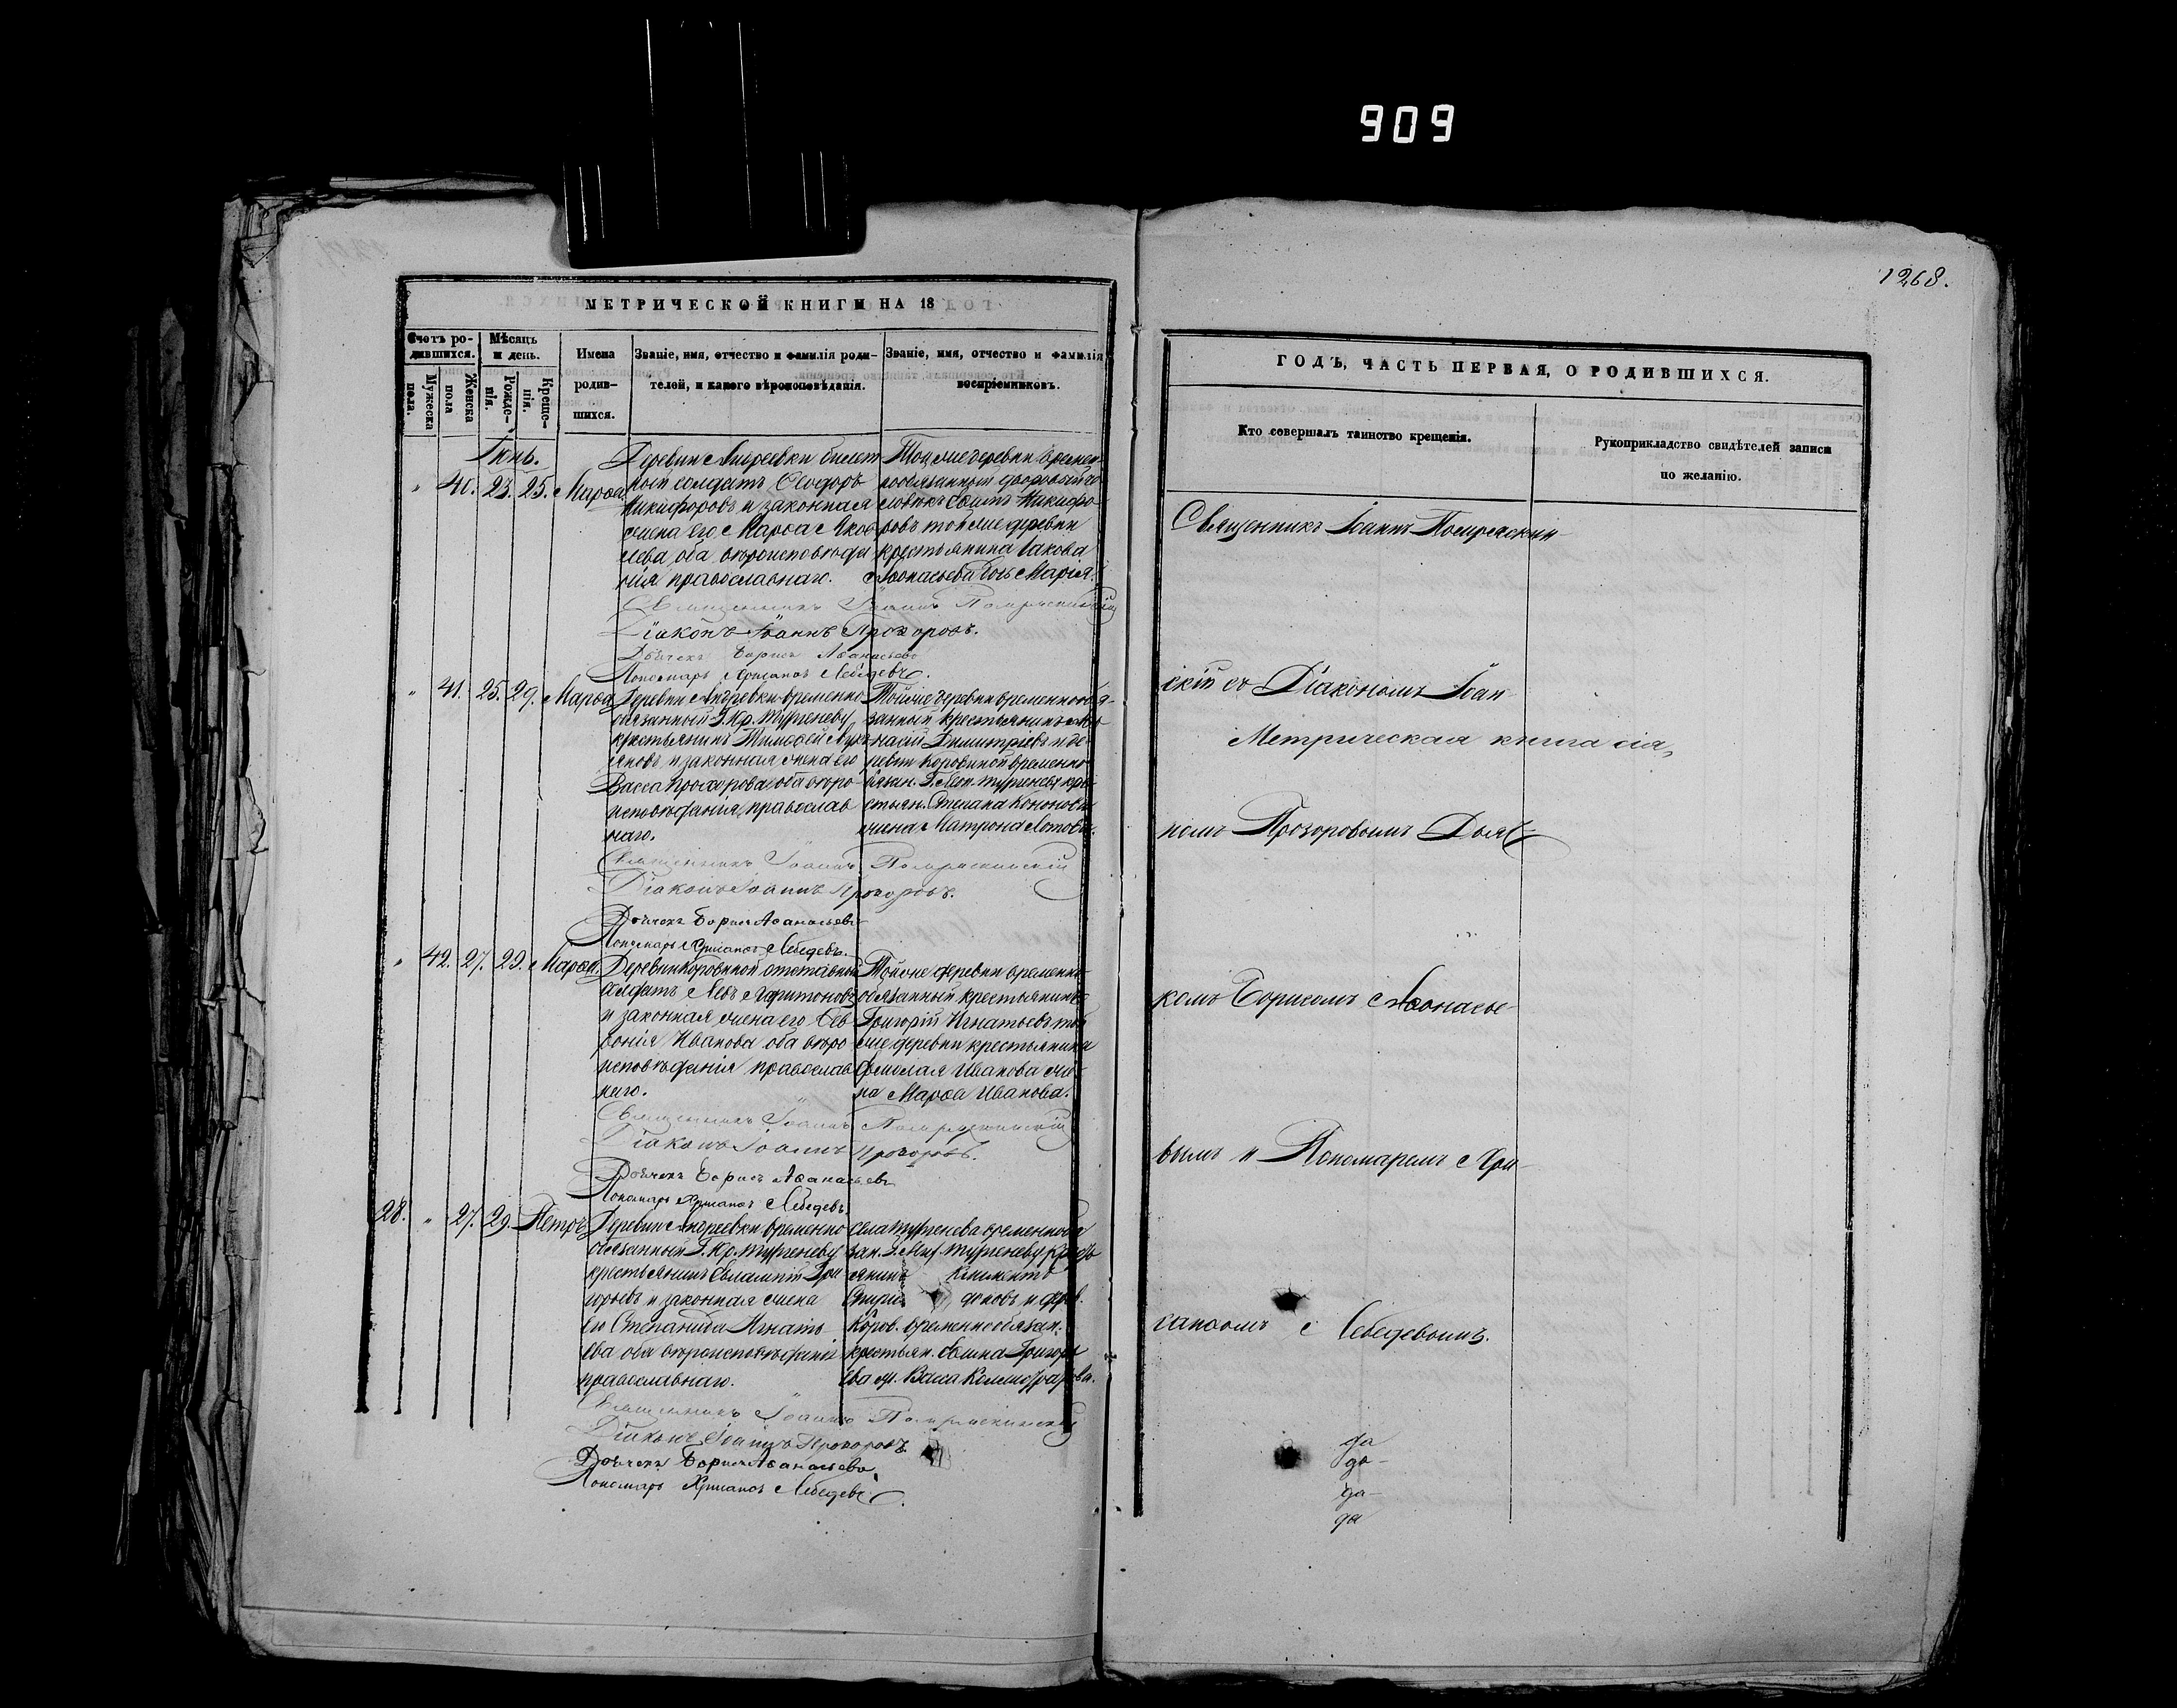 909
1268.
МЕТРИЧЕСКОЙ КНИГИ НА 18
Счетъ ро-
дившихся.
Мужеска
пола.
Женска
пола
Мѣсяцъ
и день.
Рожде-
нія.
Креще-
нія.
Имена
родив-
шихся.
Званіе, имя, отчество и фамилія роди-
телей, и какого вѣроисповѣданія.
Званіе, имя, отчество и фамилія
воспріемниковъ.
Іюнь.
" 40. 23. 25. Марѳа
Деревни Андреевки билет
ный солдатъ Ѳеодоръ
Никифоровъ и законная
жена его Марѳа Яков
лева, оба вѣроисповѣда
нія православнаго.
Той же деревни времен-
нообязанный дворовый че
ловѣкъ Никифо
ровъ той же деревни
крестьянина Іакова
Аѳонасьева дочь Марія.
Священникъ Іоаннъ
Діаконъ Іоаннъ Прозоровъ.
Дьячекъ Борисъ Аѳанасьевъ
Пономарь Хрисанѳъ Лебедевъ.
" 41. 25. 29. Марѳа
Деревни Андреевки временно
обязанный Г. Кр. Тургеневу
крестьянинъ Тимоѳей Лукь
яновъ и законная жена его
Васса Прохорова оба вѣро-
исповѣданія православ
наго.
Той же деревни временнообя-
занный крестьянинъ Аѳо
насій Димитріевъ и де-
ревни Коровиной временно
обязан. Г. Тургеневу кре-
стьян. Степана Кононова
жена Матрона
Священникъ Іоаннъ
Діаконъ Іоаннъ Прозоровъ.
Дьячекъ Борисъ Аѳанасьевъ
Пономарь Хрисанѳъ Лебедевъ.
" 42. 27. 29. Марѳа.
Деревни Коровиной отставный
солдатъ Левъ Харитоновъ
и законная жена его Ѳев
ронія Иванова оба вѣро
исповѣданія православ
наго.
Той же деревни временно-
обязанный крестьянинъ
Григорій Игнатьевъ той
же деревни крестьянина
Иванова же-
на Марѳа Иванова.
Священникъ Іоаннъ
Діаконъ Іоаннъ Прозоровъ.
Дьячекъ Борисъ Аѳанасьевъ
Пономарь Хрисанѳъ Лебедевъ.
28. " 27. 29. Петръ
Деревни Андреевки временно
обязанный Г. Кр. Тургеневу
крестьянинъ Евлампій Гри
горьевъ и законная жена
его Степанида Игнать
ева оба вѣроисповѣданія
православнаго.
Села Тургенева временнообя
зан. Г. Мих. Тургеневу кресть
янинъ Климентъ
Спири доновъ и дерев.
Коров. временнообязан.
крестьян. Григорь
ева ж. Васса
Священникъ Іоаннъ
Діаконъ Іоаннъ Прозоровъ.
Дьячекъ Борисъ Аѳанасьевъ
Пономарь Хрисанѳъ Лебедевъ.
ГОДЪ, ЧАСТЬ ПЕРВАЯ, О РОДИВШИХСЯ.
Кто совершалъ таинство крещенія.
Рукоприкладство свидѣтелей записи
по желанію.
Священникъ Іоаннъ
скій съ Діакономъ Іоан
Метрическая книга сія,
номъ Прозоровымъ Дьяч
комъ Борисомъ Аѳонасье
вымъ и Пономаремъ Хри-
санѳомъ Лебедевымъ.
да
да-
да-
да